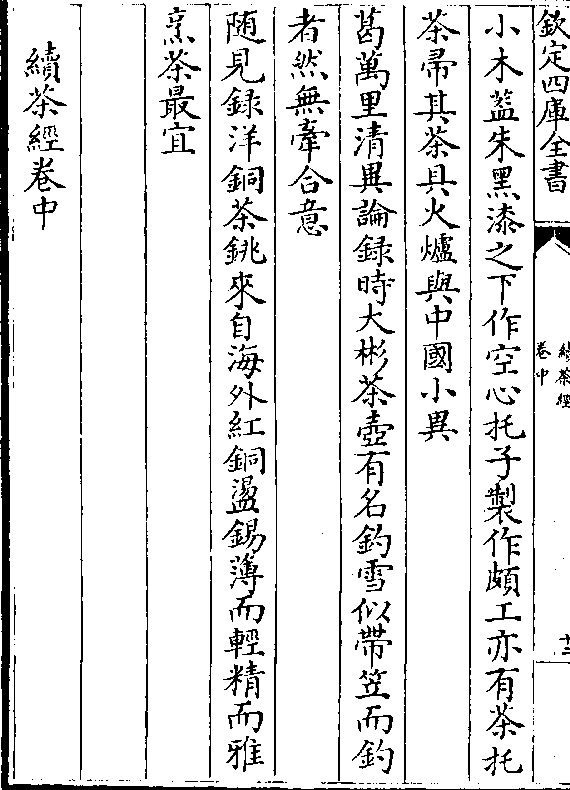 欽定四庫全書
續茶經
卷中
十三
小木葢朱黑漆之下作空心托子製作頗工亦有茶托
茶帚其茶具火爐與中國小異
葛萬里清異論録時大彬茶壺有名釣雪似帶笠而釣
者然無牽合意
随見録洋銅茶銚來自海外紅銅盪錫薄而輕精而雅
烹茶最宜
續茶經卷中